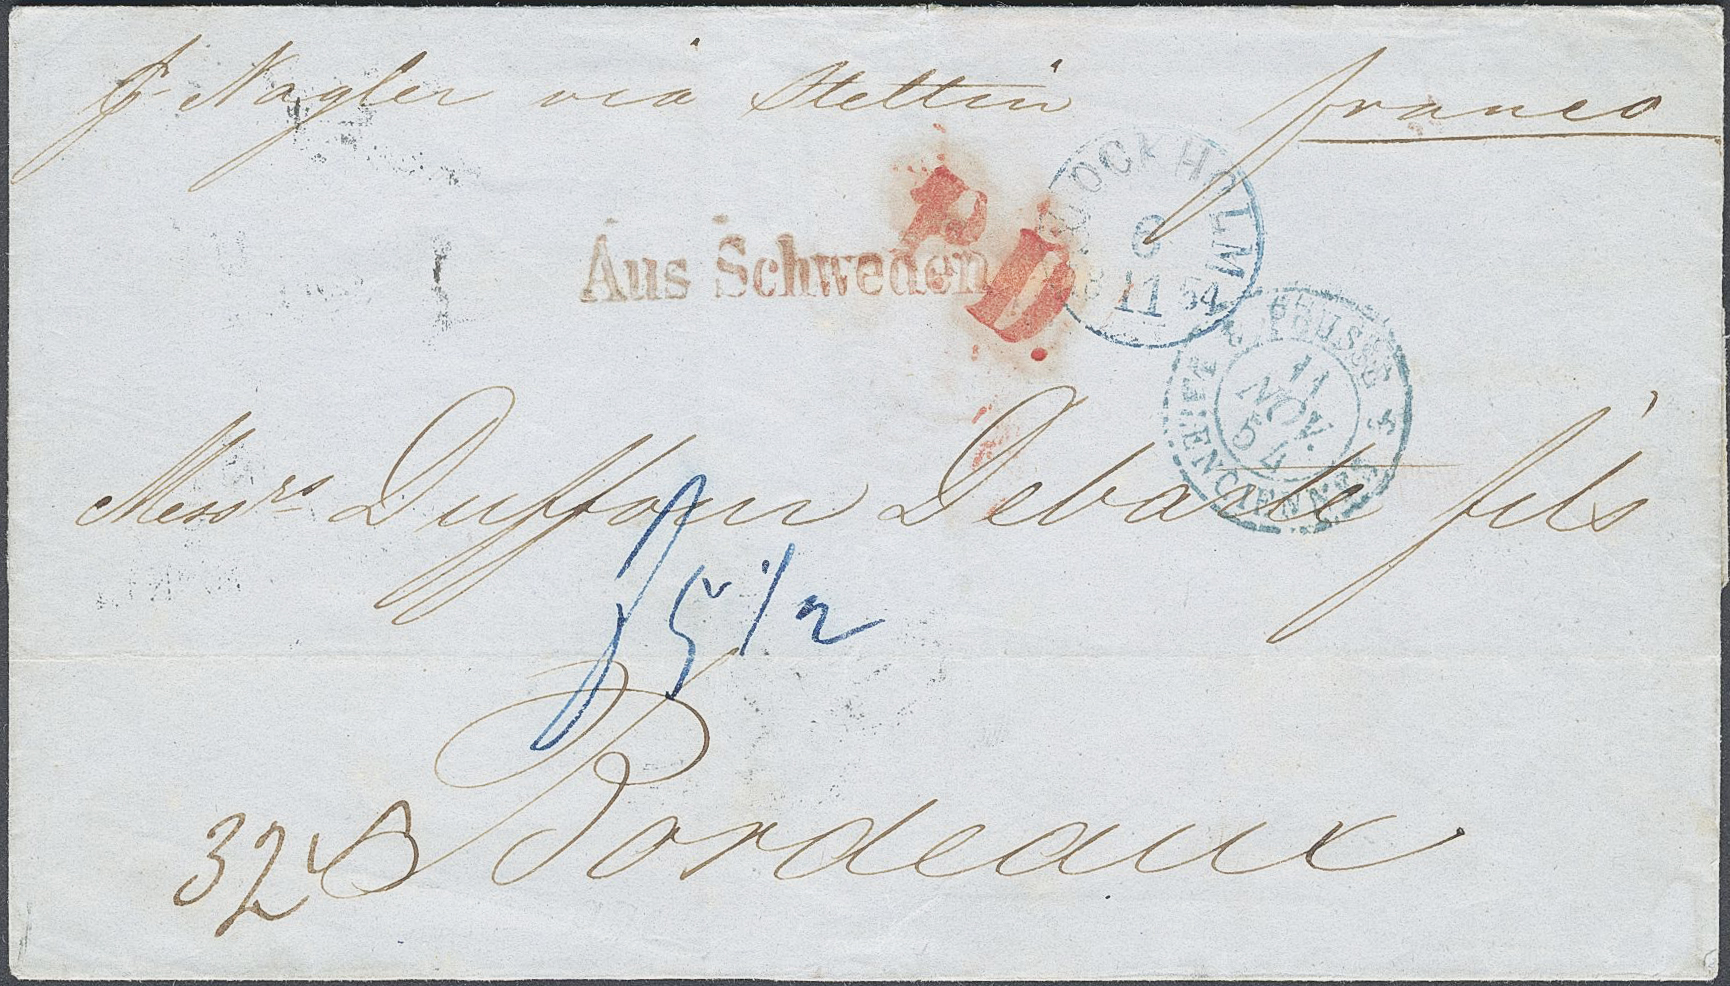 pr Nagler via Stettin franco
P.D.
STOCKHOLM
6
11 54
Aus Schweden
PRUSSE
11
NOV.
54
VALENCIENNES
Messrs Duffour Debarte fils
f 5 1/2
Bordeaux
32